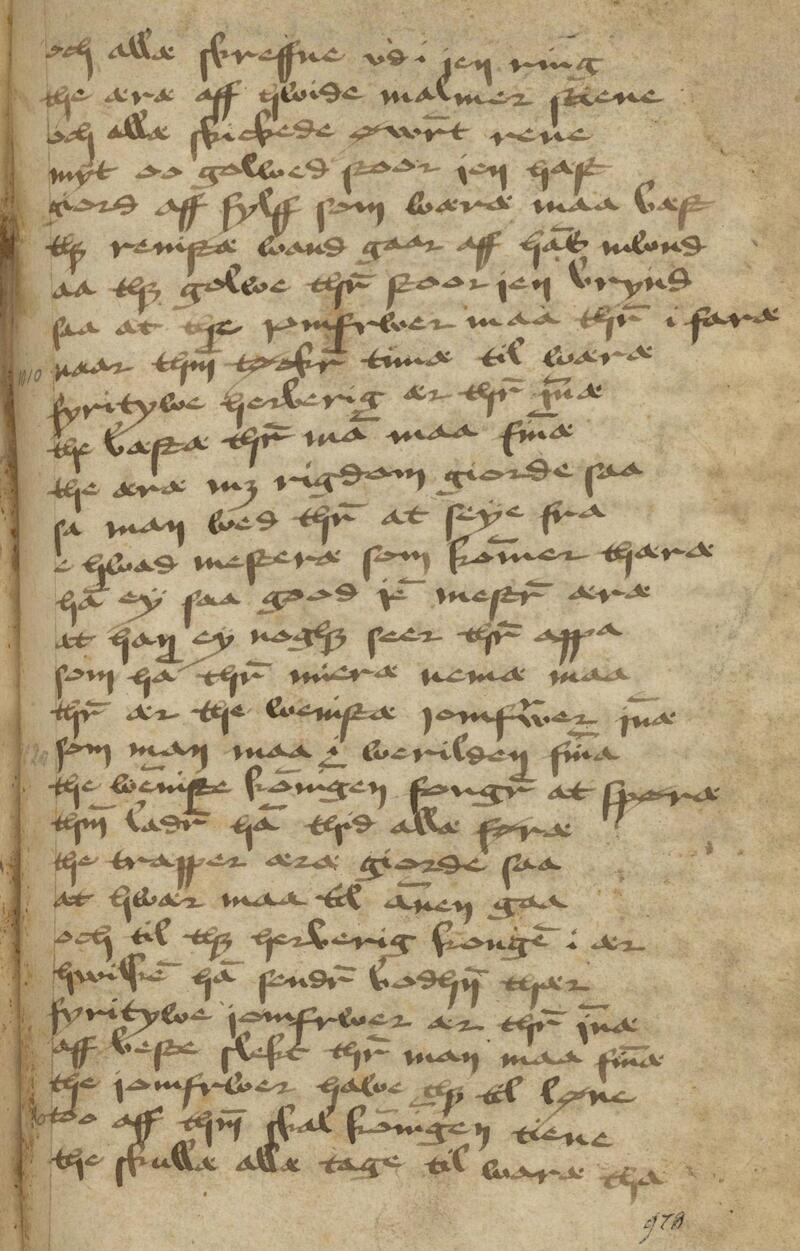 och allæ skreffne vd i jen ring
the æræ aff hwide malmer stiene
och allæ skickede øwrt rene
myt oo golwed stoor jen hæst
giord aff sylff som wæræ maa bæst
thz renistæ wand gaar aff hās mwnd
aa thz golwe thr̄ stoor jen brynd
saa at the jomfrwer maa thr̄ i faræ
1110 naar thm̄ tøckr̄ timæ til wæræ
fyritywe herberig ær thr̄ in̄æ
the bæstæ thr̄ mā maa fin̄æ
the æræ mz rigdom giorde saa
sa man wed thr̄ at seye fra
e hwad mesteræ som kom̄er thæræ
hā ey saa good jē mestr̄ æræ
at han ey noghz seer thr̄ appa
som hā thr̄ mieræ nemæ maa
thr̄ ær the wenistæ jomfrwer in̄æ
som man maa i werilden fin̄a
the wēniste kōnīgen fongr̄ at spøræ
thm̄ ladr̄ hā thid allæ føræ
the trapper æræ giorde saa
at hwær maa til ān̄en gaa
och til thz herberig kongē i ær
hwilkē hā sendr̄ bodhn̄ thær
fyritywe jomfrwer ær thr̄ in̄æ
aff beste slekt thr̄ man maa fin̄æ
the jomfrwer halwe thz til løne
too aff thm̄ skal kōnīgen tiene
the skullæ allæ tage til waræ tha
978